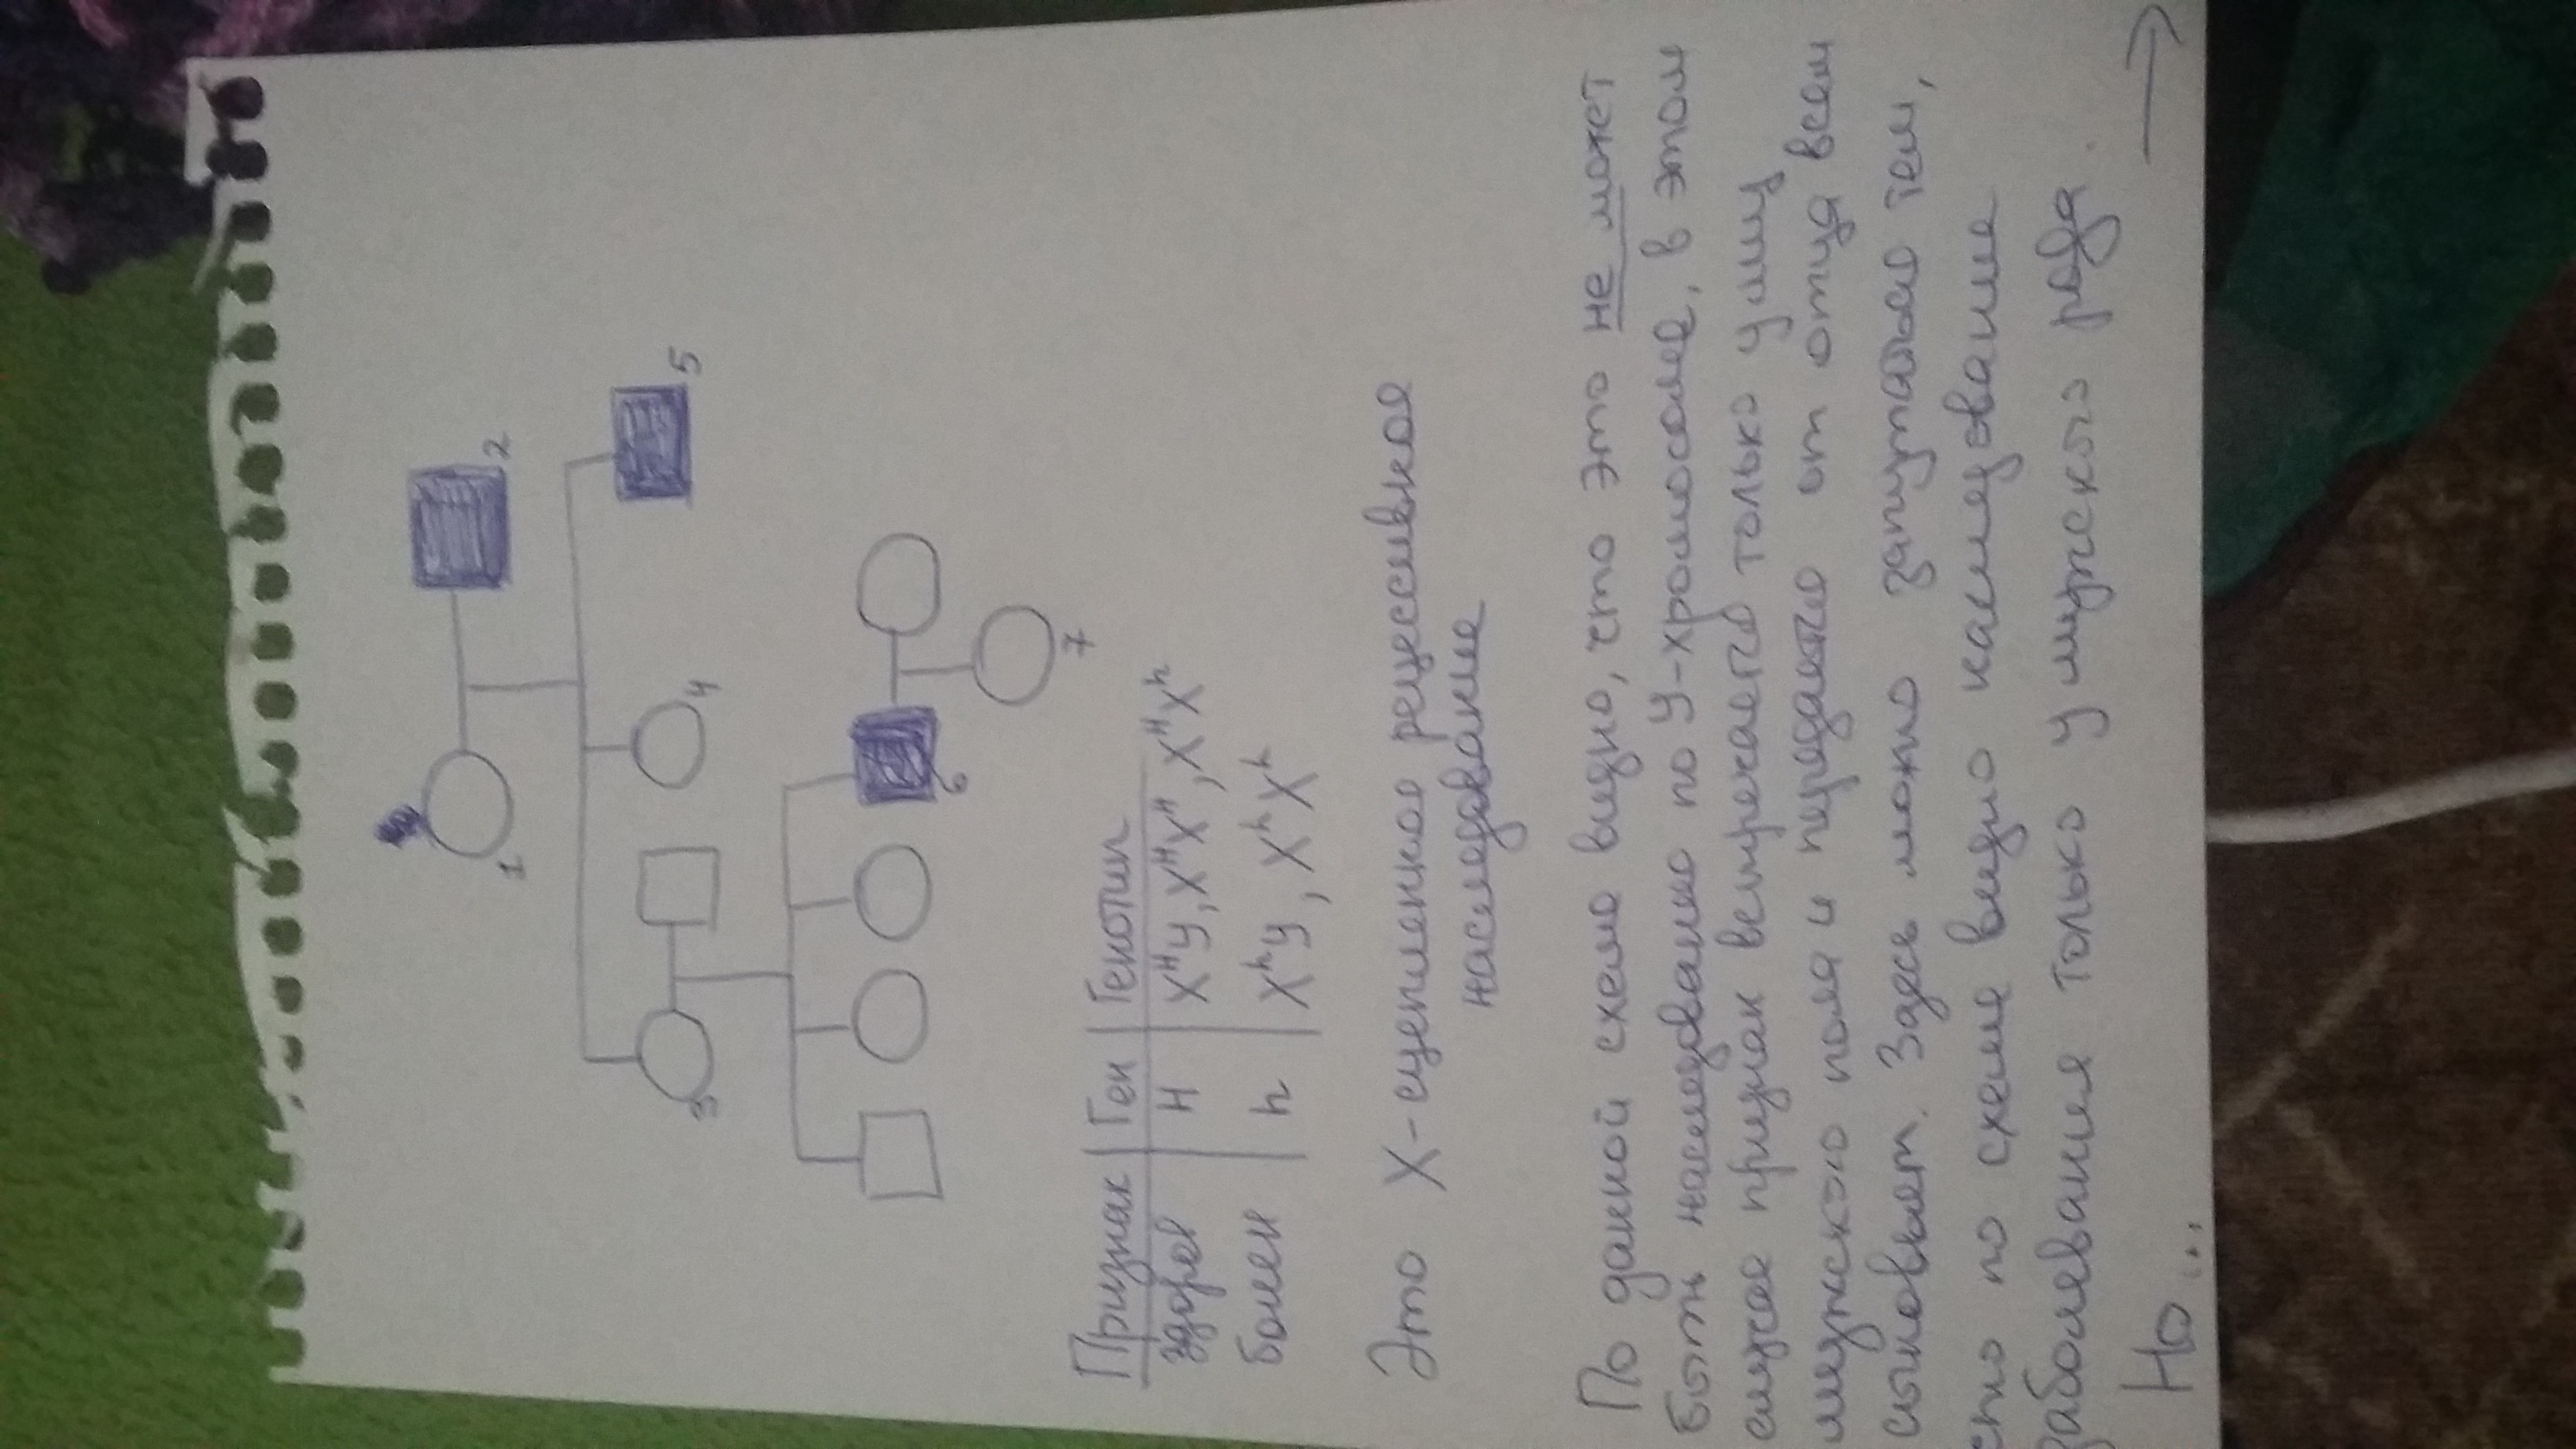 1
2
3
4
5
6
7
Признак | Ген | Генотип
здоров | H | XᴴY, XᴴXᴴ, XᴴXʰ
болен | h | XʰY, XʰXʰ
Это X-сцепленное рецессивное
наследование
По данной схеме видно, что это не может
быть наследование по У-хромосоме, в этом
случае признак встречается только у лиц
мужского пола и передается от отца всем
сыновьям. Здесь можно запутаться тем,
что по схеме видно наследование
заболевания только у мужского рода.
Но... →